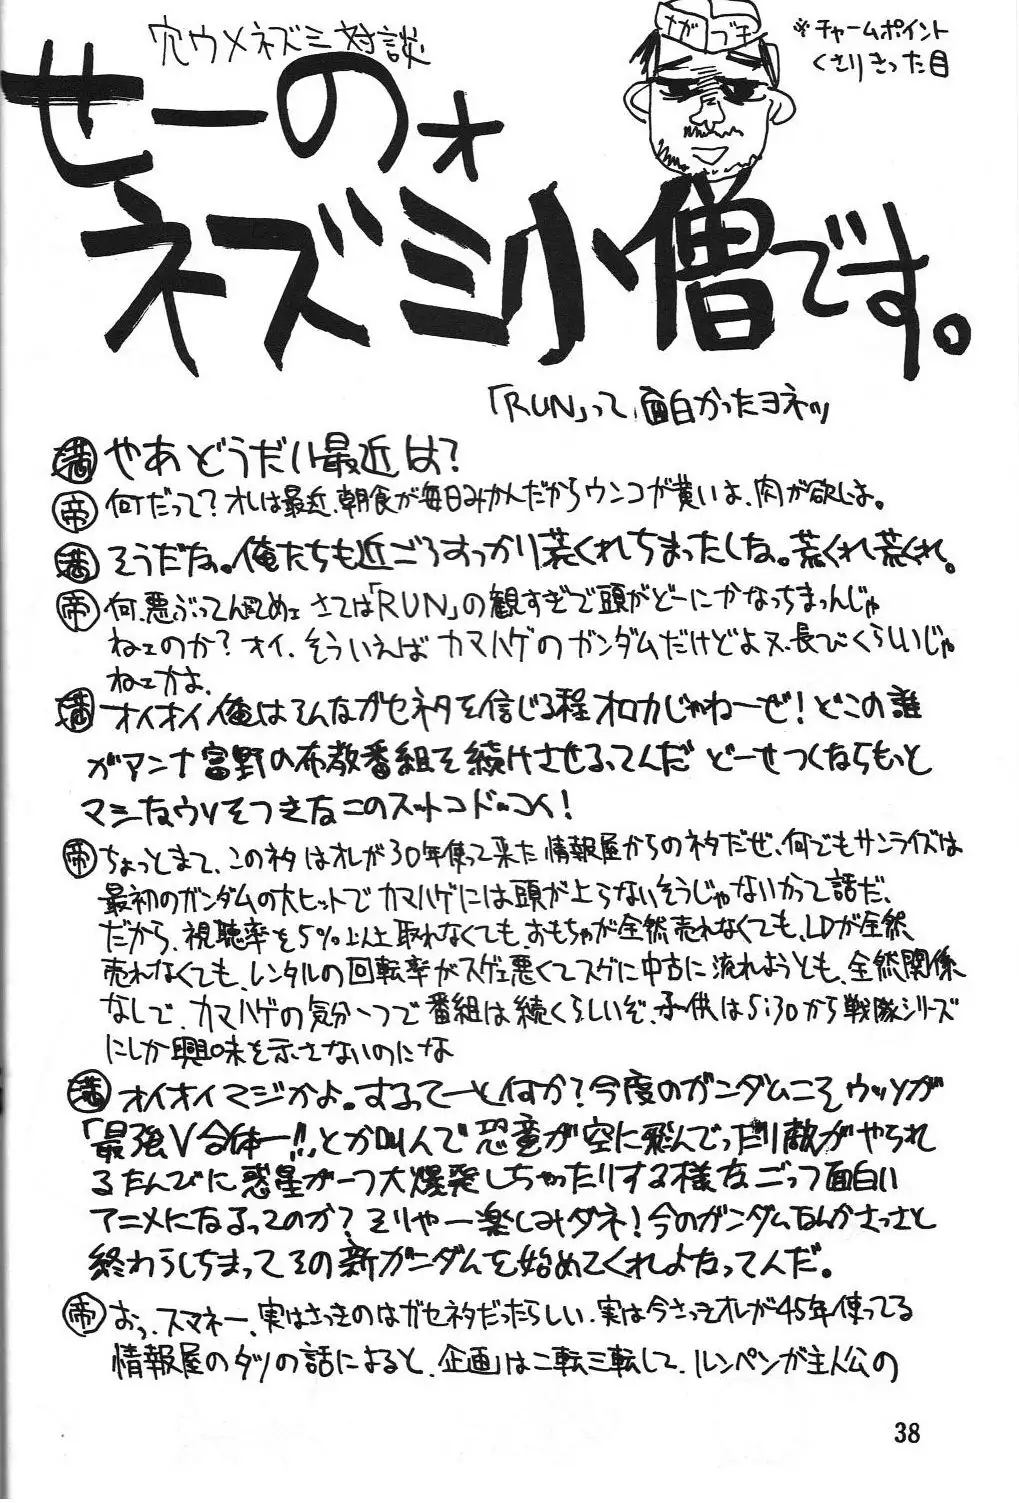 穴ウメネズミ対談
ながブチ
※チャームポイント
くさりきった目
せーのォ
ネズミ小僧です。
「RUN」って、面白かったヨネッ
満 やあどうだい最近は?
帝 何だって?オレは最近、朝食が毎日みかんだからウンコが黄いよ、肉が欲しいよ。
満 そうだな。俺たちも近ごろすっかり荒くれちまったしな。荒くれ荒くれ。
帝 何、悪ぶってんだめェ さては「RUN」の観すぎで頭がどーにかなっちまったんじゃ
ねェのか?オイ、そういえば カマハゲのガンダムだけどよ又、長びくらしいじゃ
ねェかよ。
満 オイオイ 俺はそんなガセネタを信じる程オロカじゃねーぜ!どこの誰
がアンナ富野の布教番組を続けさせるってんだ どーせつくならもっと
マシなウソをつきなこのスットコドッコイ!
帝 ちょっとまて、このネタはオレが30年使って来た情報屋からのネタだぜ、何でもサンライズは
最初のガンダムの大ヒットで カマハゲには頭が上らないそうじゃないかって話だ、
だから、視聴率を5%以上取れなくても、おもちゃが全然売れなくても、LDが全然
売れなくても、レンタルの回転率がスゲェ悪くてスグに中古に流れようとも、全然関係
なしで、カマハゲの気分一つで番組は続くらしいぞ、子供は5:30から戦隊シリーズ
にしか興味を示さないのにな
満 オイオイマジかよ。するってーと何か?今度のガンダムこそウッソが
「最強V合体ー!!」とか叫んで恐竜が空に飛んでったり敵がやられ
るたんびに惑星が一つ大爆発しちゃったりする様なごっつ面白い
アニメになるってのか?そりゃー楽しみダネ!今のガンダムなんかさっさと
終わらしちまってその新ガンダムを始めてくれよなってんだ。
帝 おっ、スマネー、実はさっきのはガセネタだったらしい、実は今さっきオレが45年使ってる
情報屋のダツの話によると、企画は二転三転して、ルンペンが主人公の
38